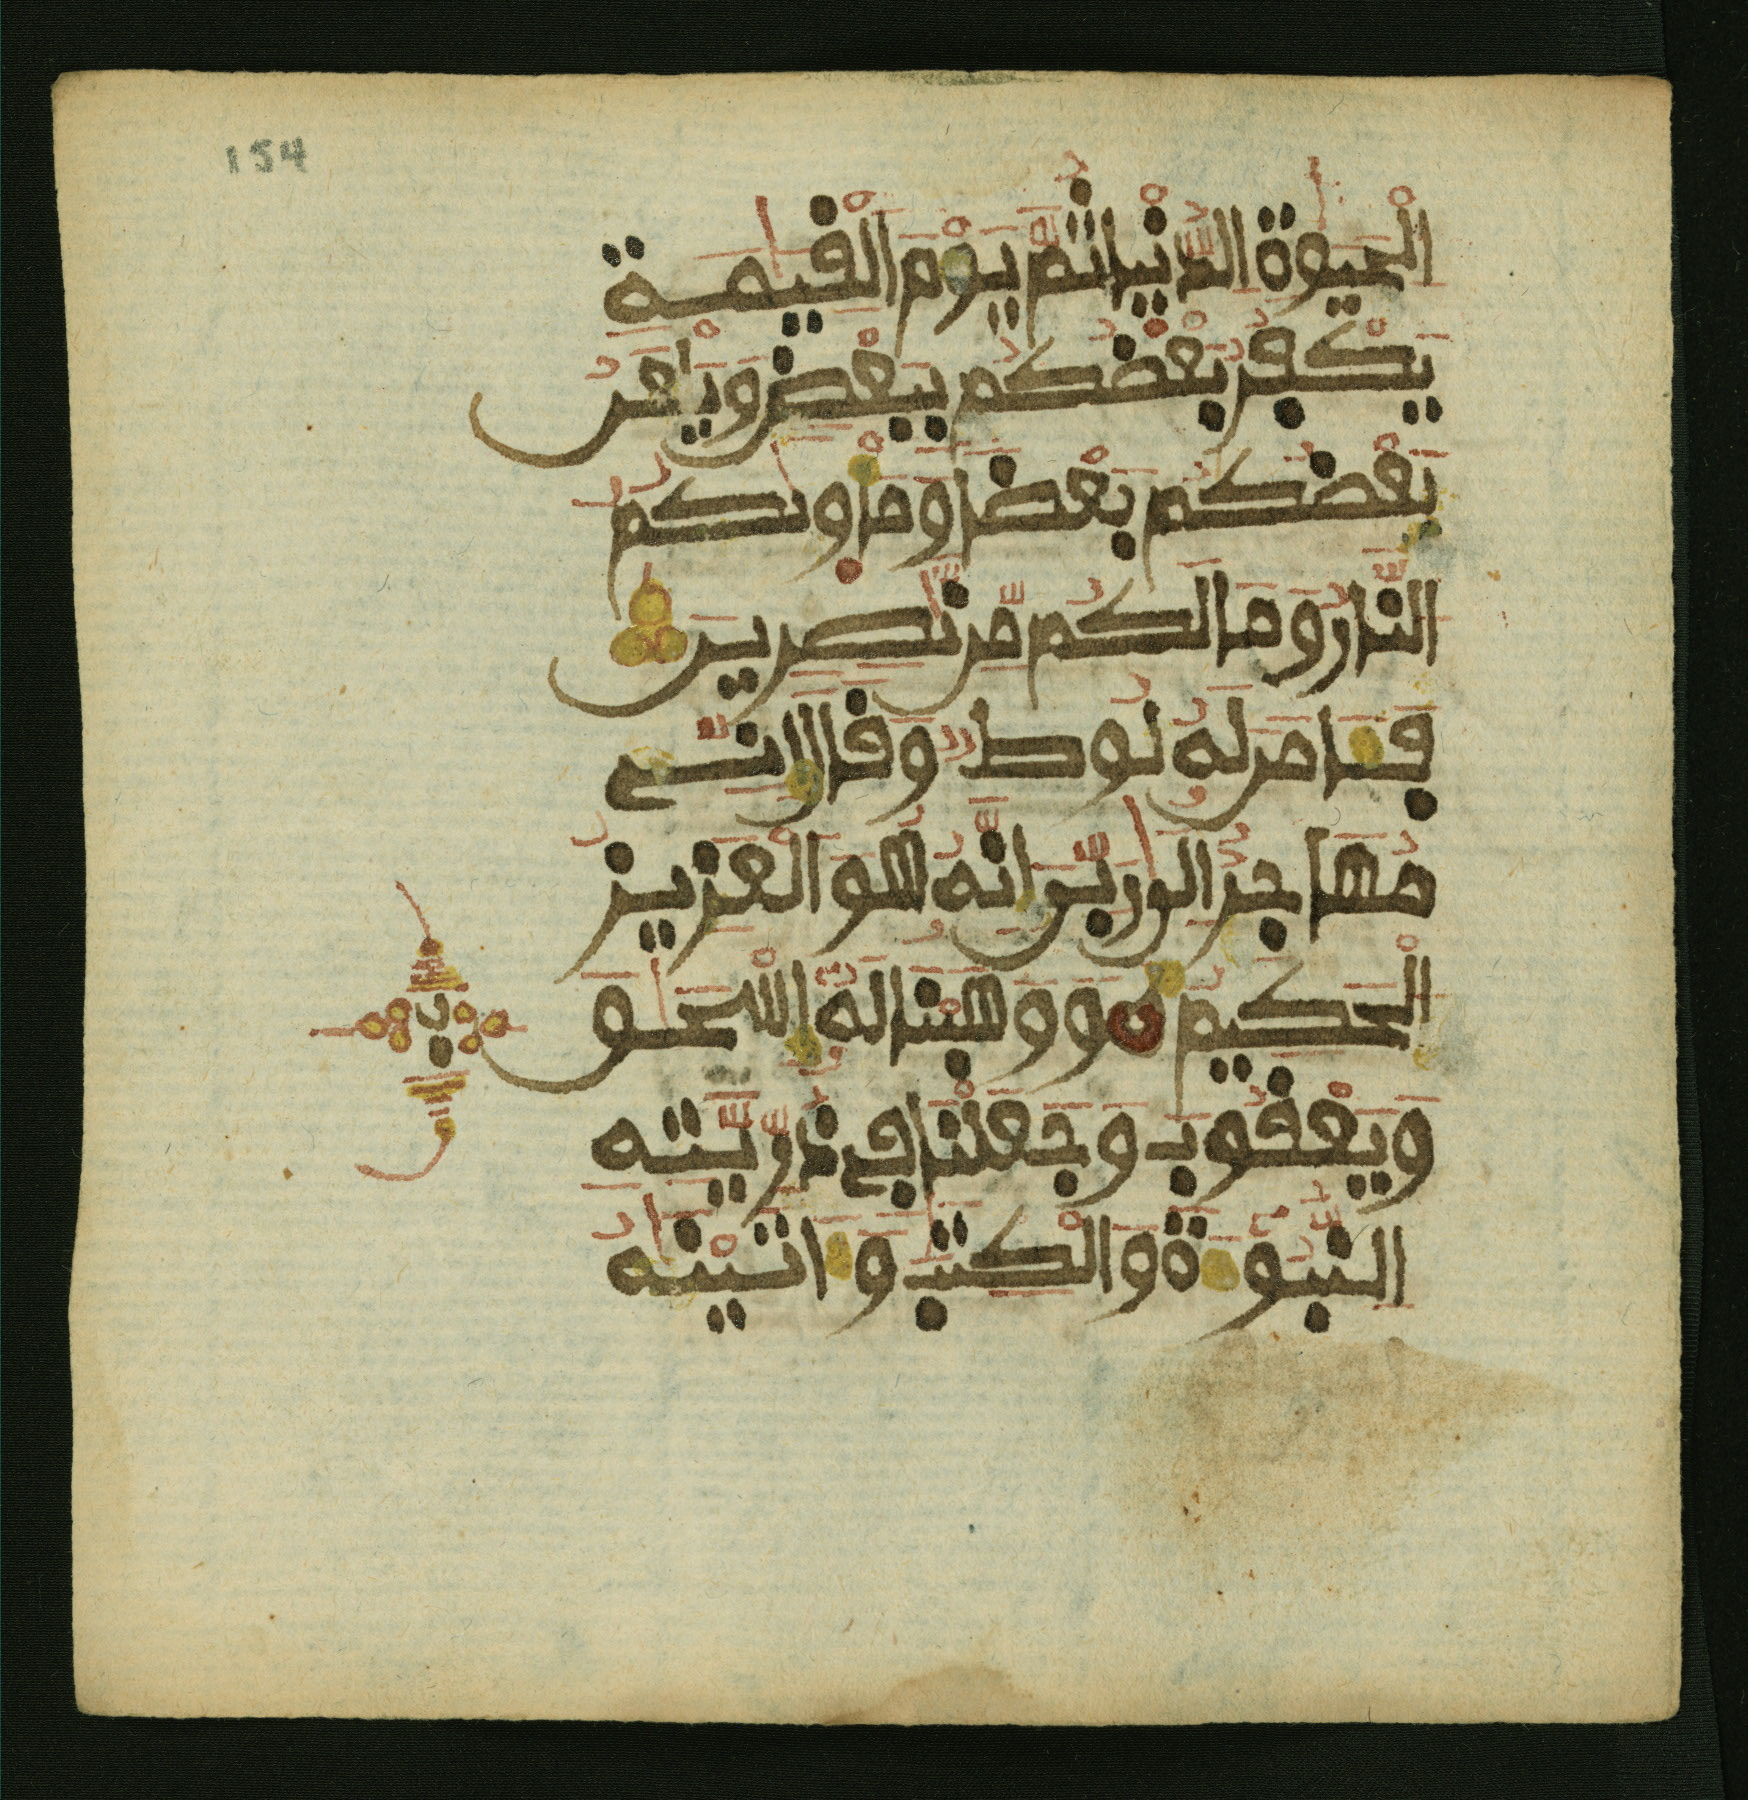 154
الْحَيَوٰةِ الدُّنْيَا ثُمَّ يَوْمَ الْقِيَٰمَةِ
يَكْفُرُ بَعْضُكُم بِبَعْضٍ وَيَلْعَنُ
بَعْضُكُم بَعْضًا وَمَأْوَىٰكُمُ
النَّارُ وَمَا لَكُم مِّن نَّٰصِرِينَ
فَـَٔامَنَ لَهُۥ لُوطٌ وَقَالَ إِنِّے
مُهَاجِرٌ إِلَىٰ رَبِّيَ إِنَّهُۥ هُوَ الْعَزِيزُ
الْحَكِيمُ وَوَهَبْنَا لَهُۥ إِسْحَٰقَ
وَيَعْقُوبَ وَجَعَلْنَا فِے ذُرِّيَّتِهِ
النُّبُوٓءَةَ وَالْكِتَٰبَ وَءَاتَيْنَٰهُ
ب